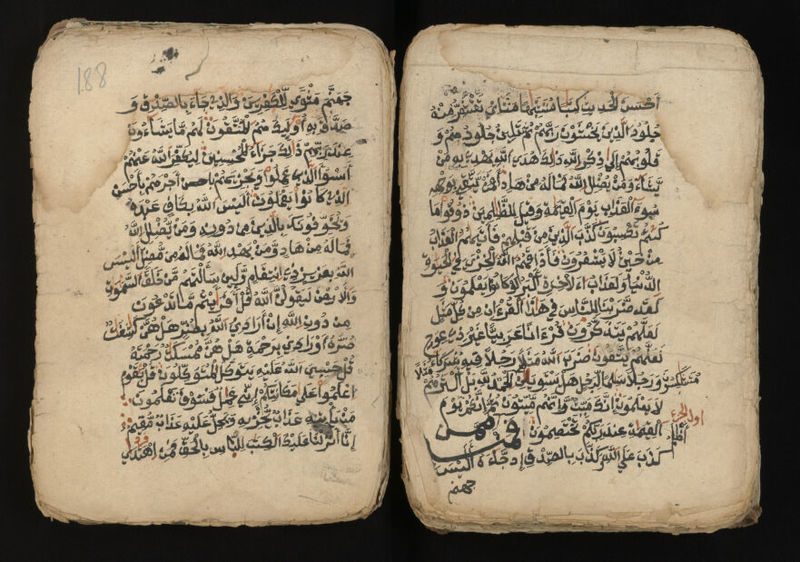 احسن الحديث كتبا متشبها مثاني تقشعر منه
جلود الذين يخشون ربهم ثم تلين جلودهم و
قلوبهم الى ذكر الله ذلك هدى الله يهدي به من
يشاء ومن يضلل الله فما له من هاد افمن يتقي بوجهه
سوء العذاب يوم القيمة وقيل للظلمين ذوقوا ما
كنتم تكسبون كذب الذين من قبلهم فاتيهم العذاب
من حيث لا يشعرون فاذاقهم الله الخزي في الحيوة
الدنيا ولعذاب الاخرة اكبر لو كانوا يعلمون و
لقد ضربنا للناس في هذا القرءان من كل مثل
لعلهم يتذكرون قرءانا عربيا غير ذي عوج
لعلهم يتقون ضرب الله مثلا رجلا فيه شركاء
متشكسون ورجلا سلما لرجل هل يستوين مثلا الحمد لله بل اكثرهم
لا يعلمون انك ميت وانهم ميتون ثم انكم يوم
القيمة عند ربكم تختصمون فمن اظلم ممن
كذب على الله وكذب بالصدق اذ جاءه اليس
جهنم
188
جهنم مثوى للكفرين والذي جاء بالصدق و
صدق به اوليك هم المتقون لهم ما يشاءون
عند ربهم ذلك جزاء المحسنين ليكفر الله عنهم
اسوا الذي عملوا ويجزيهم اجرهم باحسن
الذي كانوا يعملون اليس الله بكاف عبده
ويخوفونك بالذين من دونه ومن يضلل الله
فما له من هاد ومن يهد الله فما له من مضل اليس
الله بعزيز ذي انتقام ولين سالتهم من خلق السموت
والارض ليقولن الله قل افرايتم ما تدعون
من دون الله ان ارادني الله بضر هل هن كشفت
ضره او ارادني برحمة هل هن ممسكت رحمته
قل حسبي الله عليه يتوكل المتوكلون قل يقوم
اعملوا على مكانتكم اني عمل فسوف تعلمون
من ياتيه عذاب يخزيه ويحل عليه عذاب مقيم
انا انزلنا عليك الكتب للناس بالحق فمن اهتدى